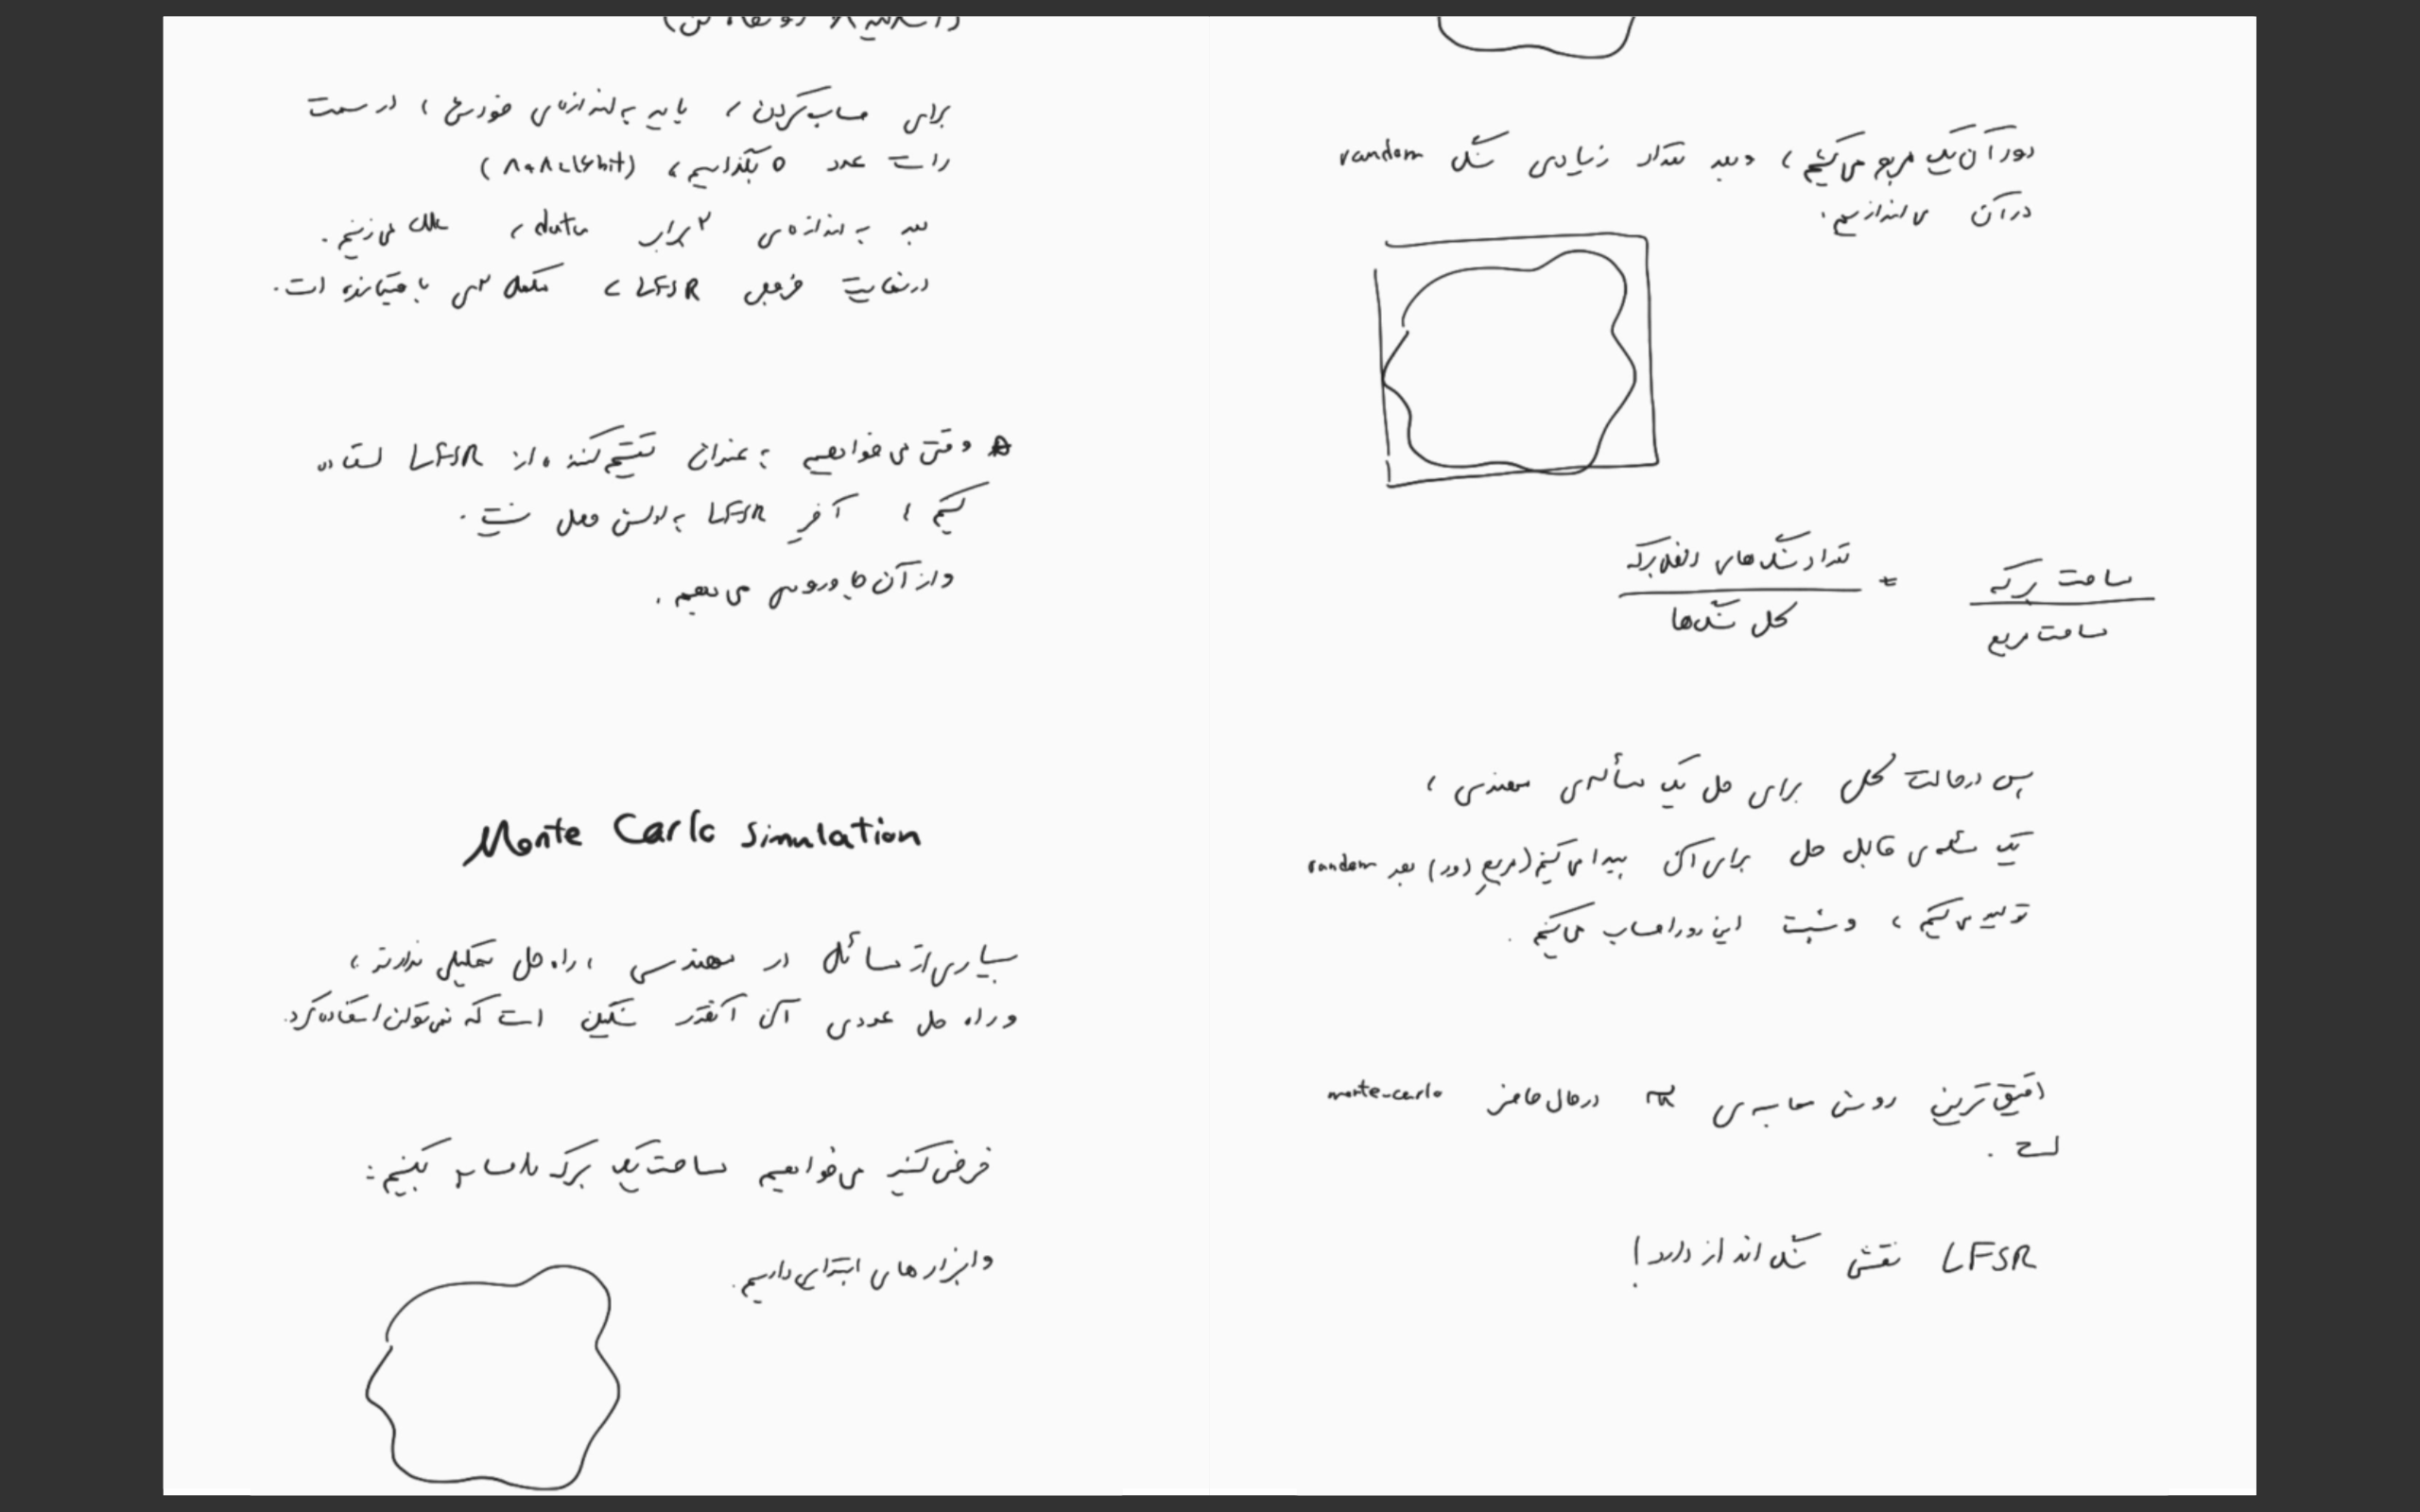 برای حساب کردن ، باید به اندازه‌ی خودش ، در سمت
راست عدد 0 بگذاریم ،
بعد به اندازه‌ی ۲ برابر data ، کلاک می‌زنیم .
در نهایت خروجی LFSR ، مکمل ۲ی باقیمانده است .
وقتی می‌خواهیم به عنوان تقسیم کننده از LFSR استفاده
کنیم ، آخر LFSR به اولش وصل نیست .
و از آن ها ورودی می‌دهیم .
Monte Carlo Simulation
بسیاری از مسائل در مهندسی ، راه حل تحلیلی ندارند ،
و راه حل عددی آن آنقدر سنگین است که نمی‌توان استفاده کرد .
فرض کنید می‌خواهیم مساحت یک برگ را حساب کنیم :
و ابزارهای ابتدایی داریم .
دور آن یک مربع می‌کشیم ، و بعد تعداد زیادی سنگ random
در آن می‌اندازیم .
مساحت برکه / مساحت مربع = تعداد سنگ های داخل برکه / کل سنگ‌ها
پس در حالت کلی برای حل یک مسأله‌ی مهندسی ،
یک مسئله‌ی قابل حل برای آن پیدا می‌کنیم (مربع دور) بعد random
تولید می‌کنیم ، و نسبت این دو را حساب می‌کنیم .
دقیق ترین روش محاسبه‌ی π در حال حاضر monte-carlo
است .
LFSR نقش سنگ انداز دارد !